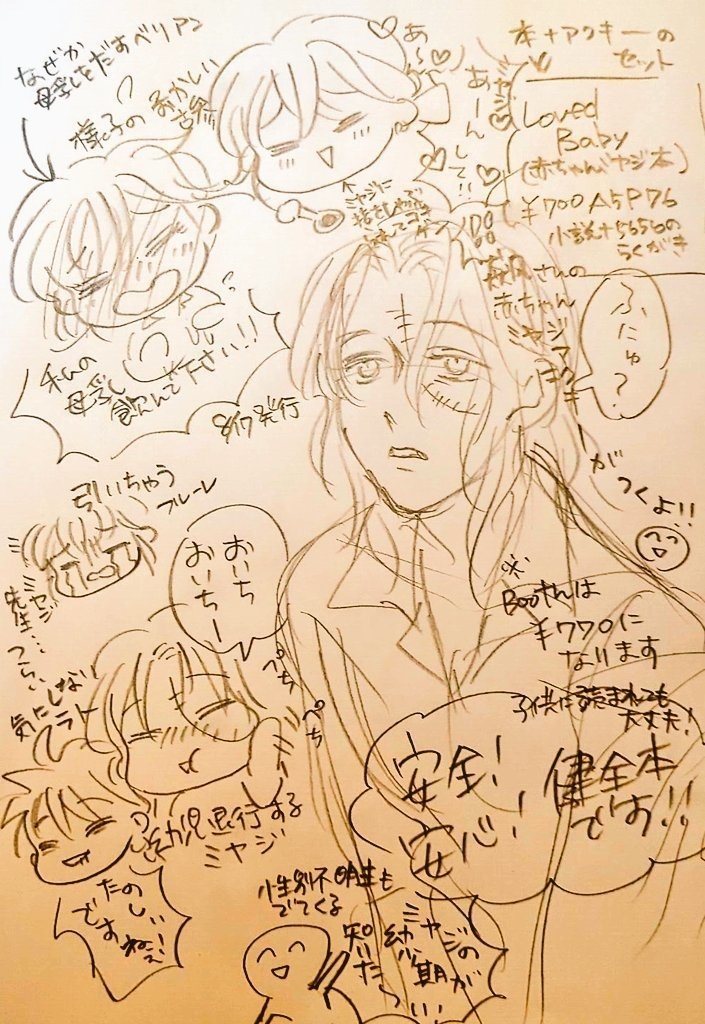 本+アクキーの
セット
Loved
Baby
(赤ちゃんミヤジ本)
¥700 A5P76
小説+5656の
らくがき
なぜか
母乳をだすベリアン
様子の おかしい
あ〜ん
あーんして!!
ミヤジに
赤ちゃん
ミヤジアクキー
がつくよ!!
ふにゅ?
私の
母乳
飲んで下さい!!
8/17発行
引いちゃう
フルーレ
ミヤジ
先生…
つらい
おいち
おいちー
ぺち
ぺち
気にしない
ラト
幼児退行する
ミヤジ
たのしい
ですねぇ!
※
Boothさんは
¥770に
なります
子供に読まれても
大丈夫!
安全!
安心!
健全本
です!!
性別不明主も
でてくる
ミヤジの
幼少期が
知りたい